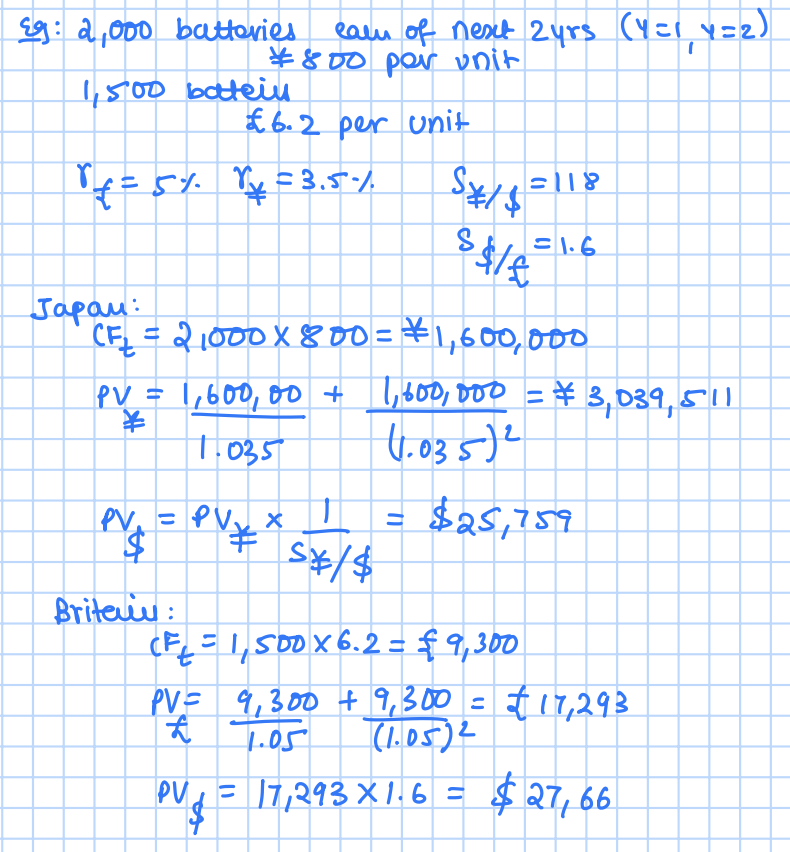 Eg: 2,000 batteries each of next 2yrs (Y=1, Y=2)
¥800 per unit
1,500 batteries
£6.2 per unit
r£ = 5% r¥ = 3.5% S¥/$ = 118
S$/£ = 1.6
Japan:
CFt = 2,000 × 800 = ¥1,600,000
PV¥ = 1,600,00 / 1.035 + 1,600,000 / (1.035)² = ¥ 3,039,511
PV$ = PV¥ × 1 / S¥/$ = $25,759
Britain:
CFt = 1,500 × 6.2 = £9,300
PV£ = 9,300 / 1.05 + 9,300 / (1.05)² = £17,293
PV$ = 17,293 × 1.6 = $27,66